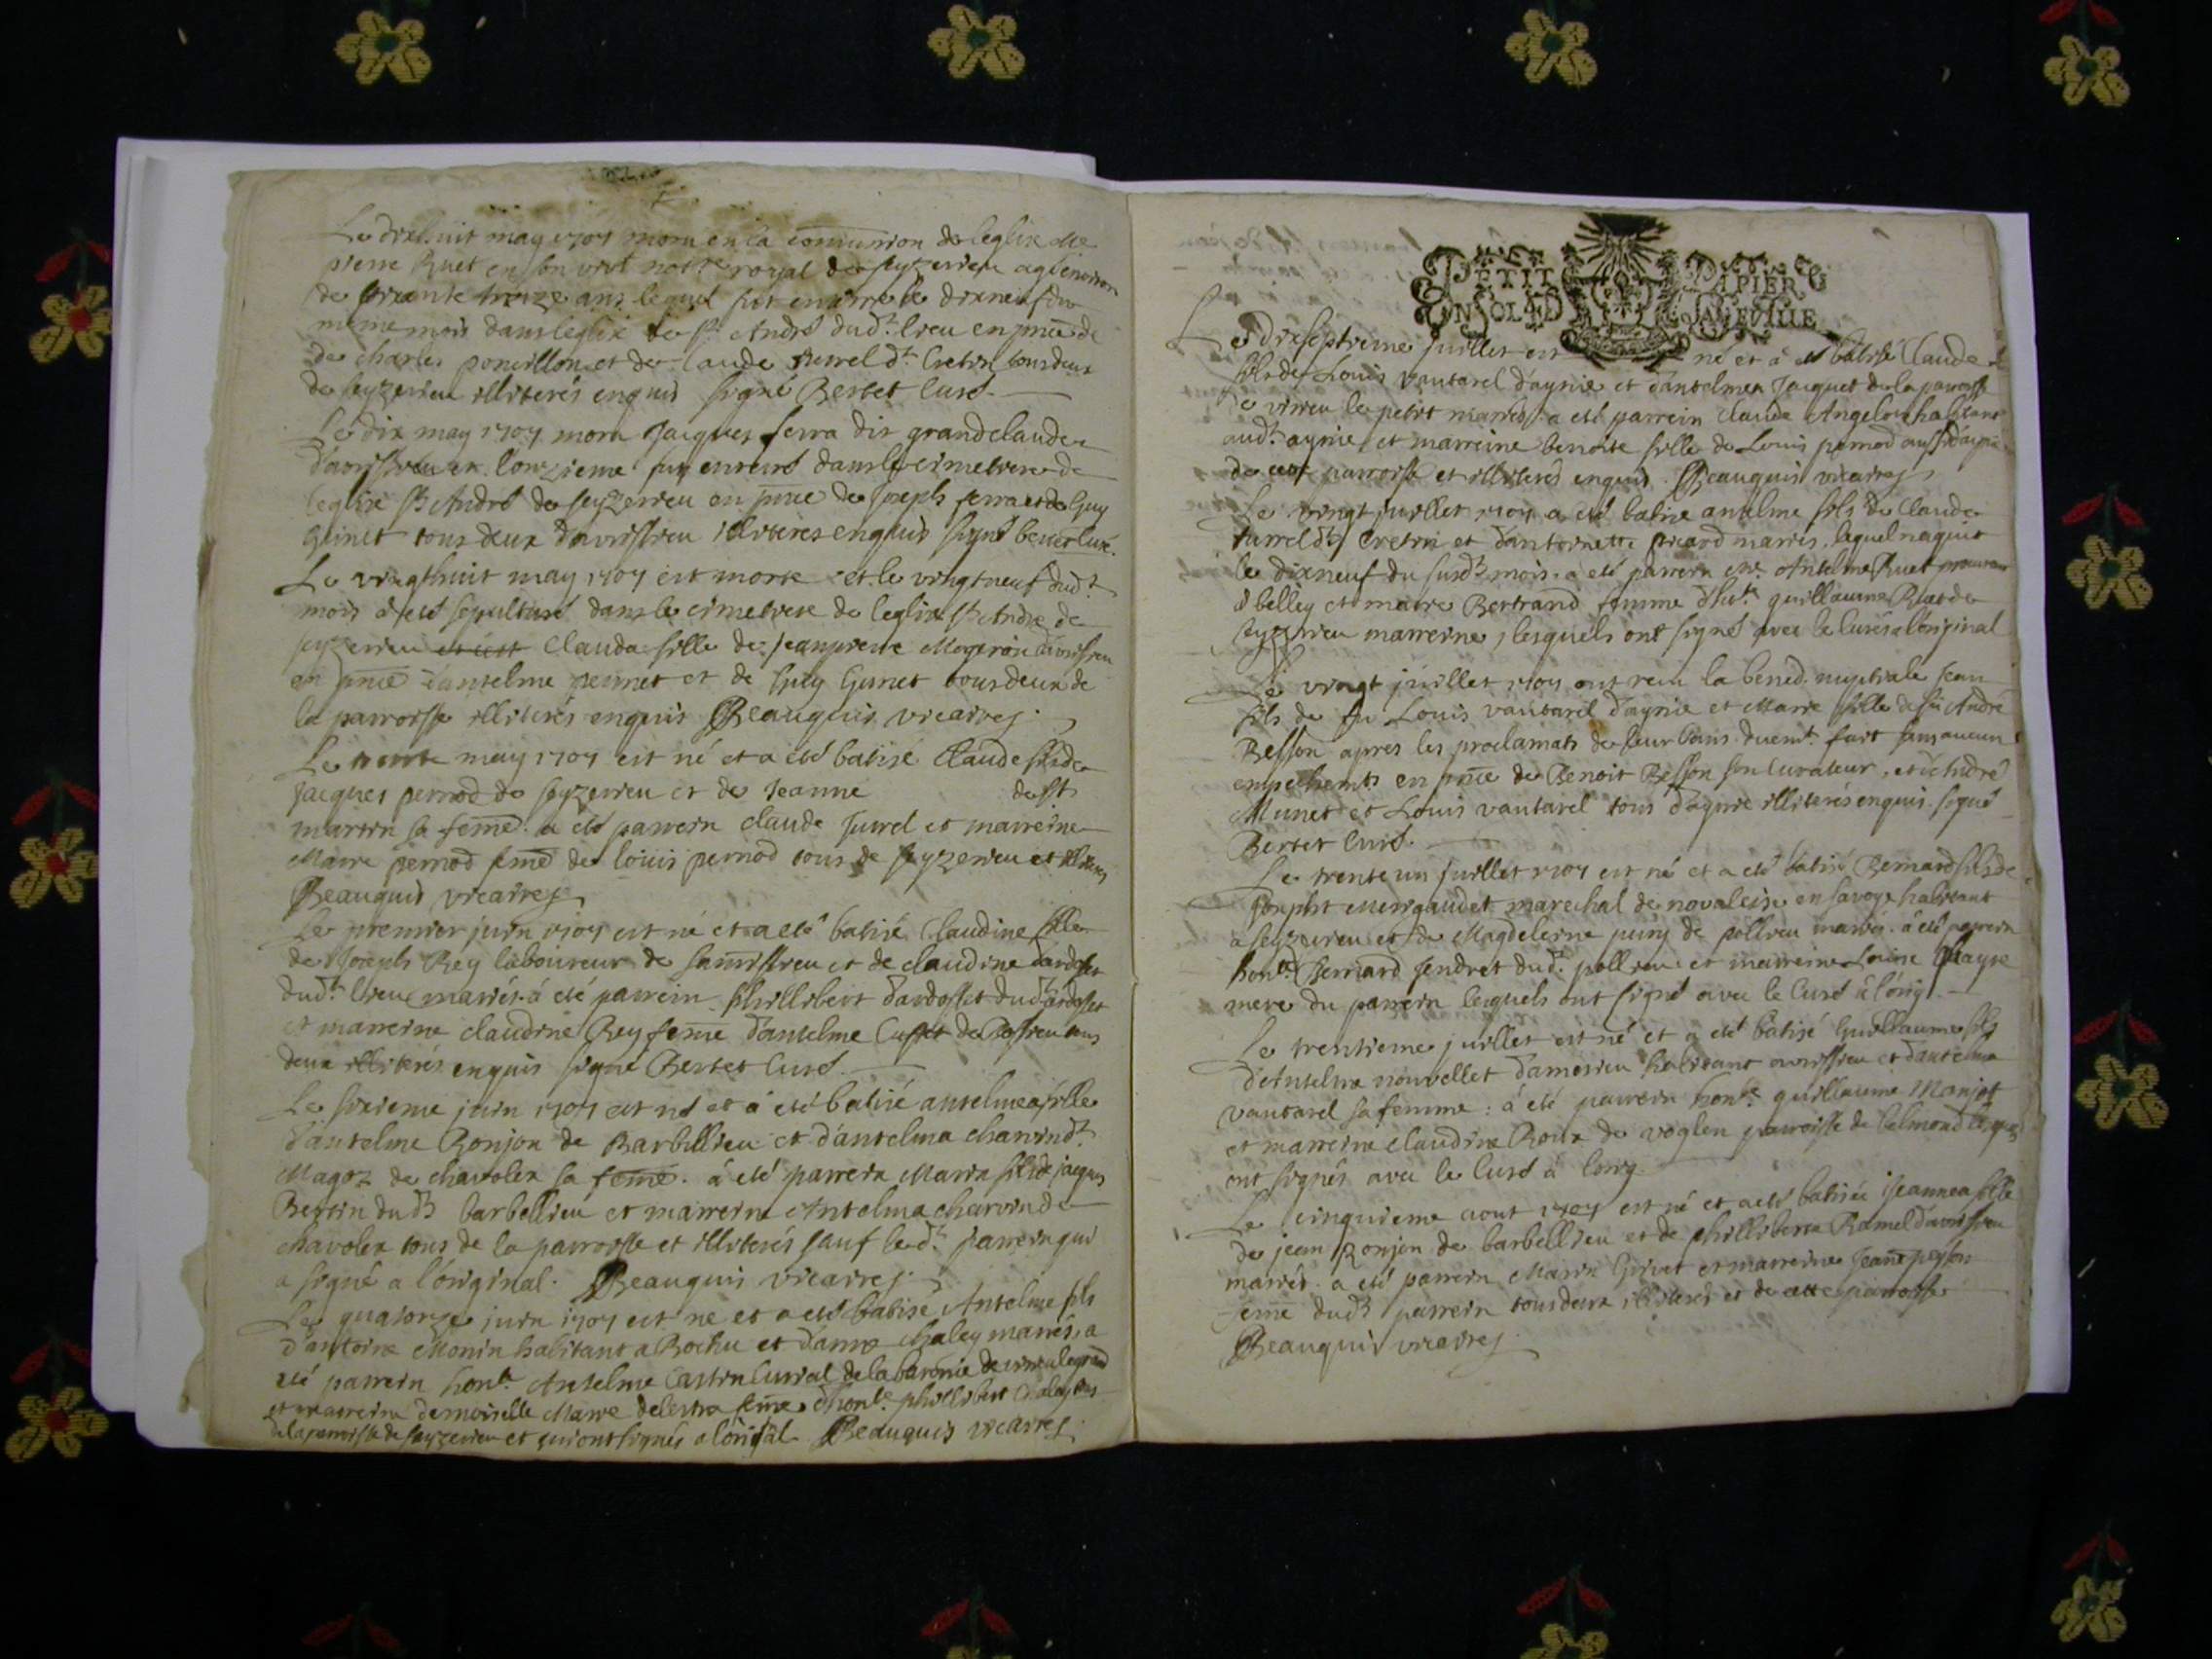 Le dixhuit may 1707 moru en la comūnion de leglise Me
pierre Ruet en son vivt nottre royal de seyzerieu agé environ
de soixante treize ans lequel fut enterré le dixneuf du
meme mois dans leglise de St André dudt. lieu en pnce de
de charles poncillon et de Claude Jurrel dt. Cretin tous deux
de seyzerieu illiterés enquis signé Bertet Curé.
Le dix may 1707 moru Jacques serra dit grandclaude
d'avrissieu et l'onzieme fut enterré dans le cimetiere de
leglise St André de seyzerieu en pnce de joseph serra et de Guy
Guinet tous deux d'avrissieu illiteres enquis signé bertet curé.
Le vingthuit may 1707 est morte et le vingtneuf dudt.
mois a eté sepulturé dans le cimetiere de leglise St Andre de
seyzerieu Clauda fille de jeanpierre Mogeron d'avrissieu
en pnce d'antelme pernet et de Guy Guinet tous deux de
la parroisse illiterés enquis Beauquis vicaire
Le trente may 1707 est né et a eté batisé Claude fils de
jacques pernod de seyzerieu et de Jeanne de St
martin sa feme. a eté parrein claude Jurrel et marreine
Marie pernod feme de louis pernod tous de seyzerieu et illiteres
Beauquis vicaire
Le premier juin 1707 est né et a eté batisé Claudine fille
de Joseph Rey laboureur de samissieu et de claudine dardosset
dudt. lieu mariés. à eté parrein phillibert dardosset dudt dardosset
et marreine claudine Rey feme d'antelme Cusset de Rossieu tous
deux illiterés enquis signé Bertet Curé.
Le sixieme juin 1707 est né et a eté batisé antelmea fille
d'antelme Ronjon de Barbillieu et d'antelma charvin dt.
Magoz de chavolex sa feme. à eté parrein Marin fils de jacques
Bertin dudt barbellieu et marreine Antelma charvin de
chavolex tous de la parroisse et illiterés sauf ledt. parrein qui
a signé a l'original. Beauquis vicaire
Le quatorze juin 1707 est né et a eté batisé Antelme fils
d'antoine Monin habitant a Bochu et d'anne chaley mariés, a
eté parrein hont. Antelme Castin Curial de la baronie de virieu le grand
et marreine demoiselle Marie delestra feme d'hont. phillibert Chaley tous
de la parroisse de seyzerieu et qui ont signés a l'origal Beauquis vicaire
PETIT PAPIER
UN SOL LED LA FEUILLE
Le dixseptieme juillet est né et à eté batisé Claude
fils de Louis vautarel d'aynie et d'antelmea Jacquet de la parroisse
de virieu le petit mariés. a eté parrein claude Angelot habitant
audt. aynie et marreine benoite fille de Louis pernod aussi d'aynie
de cette parroisse et illiterés enquis. Beauquis vicaire
Le vingt juillet 1707 a eté batisé antelme fils de Claude
Jurrel dt. Cretin et d'antoinette picard mariés, lequel naquit
le dixneuf du susdt. mois. a eté parrein me. Antelme Ruet procureur
à belley et marie Bertrand femme d'ht. guillaume Ruet de
seyzerieu marreine, lesquels ont signé avec le curé a l'original
Le vingt juillet 1707 ont recu la bened. nuptiale jean
fils de fu Louis vautarel d'aynie et Marie fille de fu André
Besson apres les proclamats de leur bans duemt. fait sans aucun
empechemts en pnce de Benoit Besson son Curateur, et d'André
Munet et Louis vautarel tous d'aynie illiterés enquis. signé
Bertet Curé.
Le trente un juillet 1707 est né et a eté batisé Bernard fils de
joseph mergaudet marechal de novaleise en savoye habitant
a seyzerieu et de Magdeleine puiry de pollieu mariés. à eté parrein
hont. Bernard Jendret dudt. pollieu et marreine Louise Playse
mere du parrein lesquels ont signé avec le Curé à l'orig.
Le trentieme juillet est né et a eté batisé Guillaume fils
d'Antelme nouvellet d'ameirieu habitant avrissieu et d'antelma
vautarel sa femme: à eté parrein hont. guillaume Monjot
et marreine claudine Roux de voglen parroisse de belmond lesquels
ont signés avec le Curé à l'orig.
Le cinquieme aout 1707 est né et a eté batisée jeannea fille
de jean Ronjon de barbellieu et de phillibertea Ramel d'avrissieu
mariés. a eté parrein Marin Guinet et marreine Jeane peysson
feme dudt parrein tous deux illiterés et de cette parroisse
Beauquis vicaire